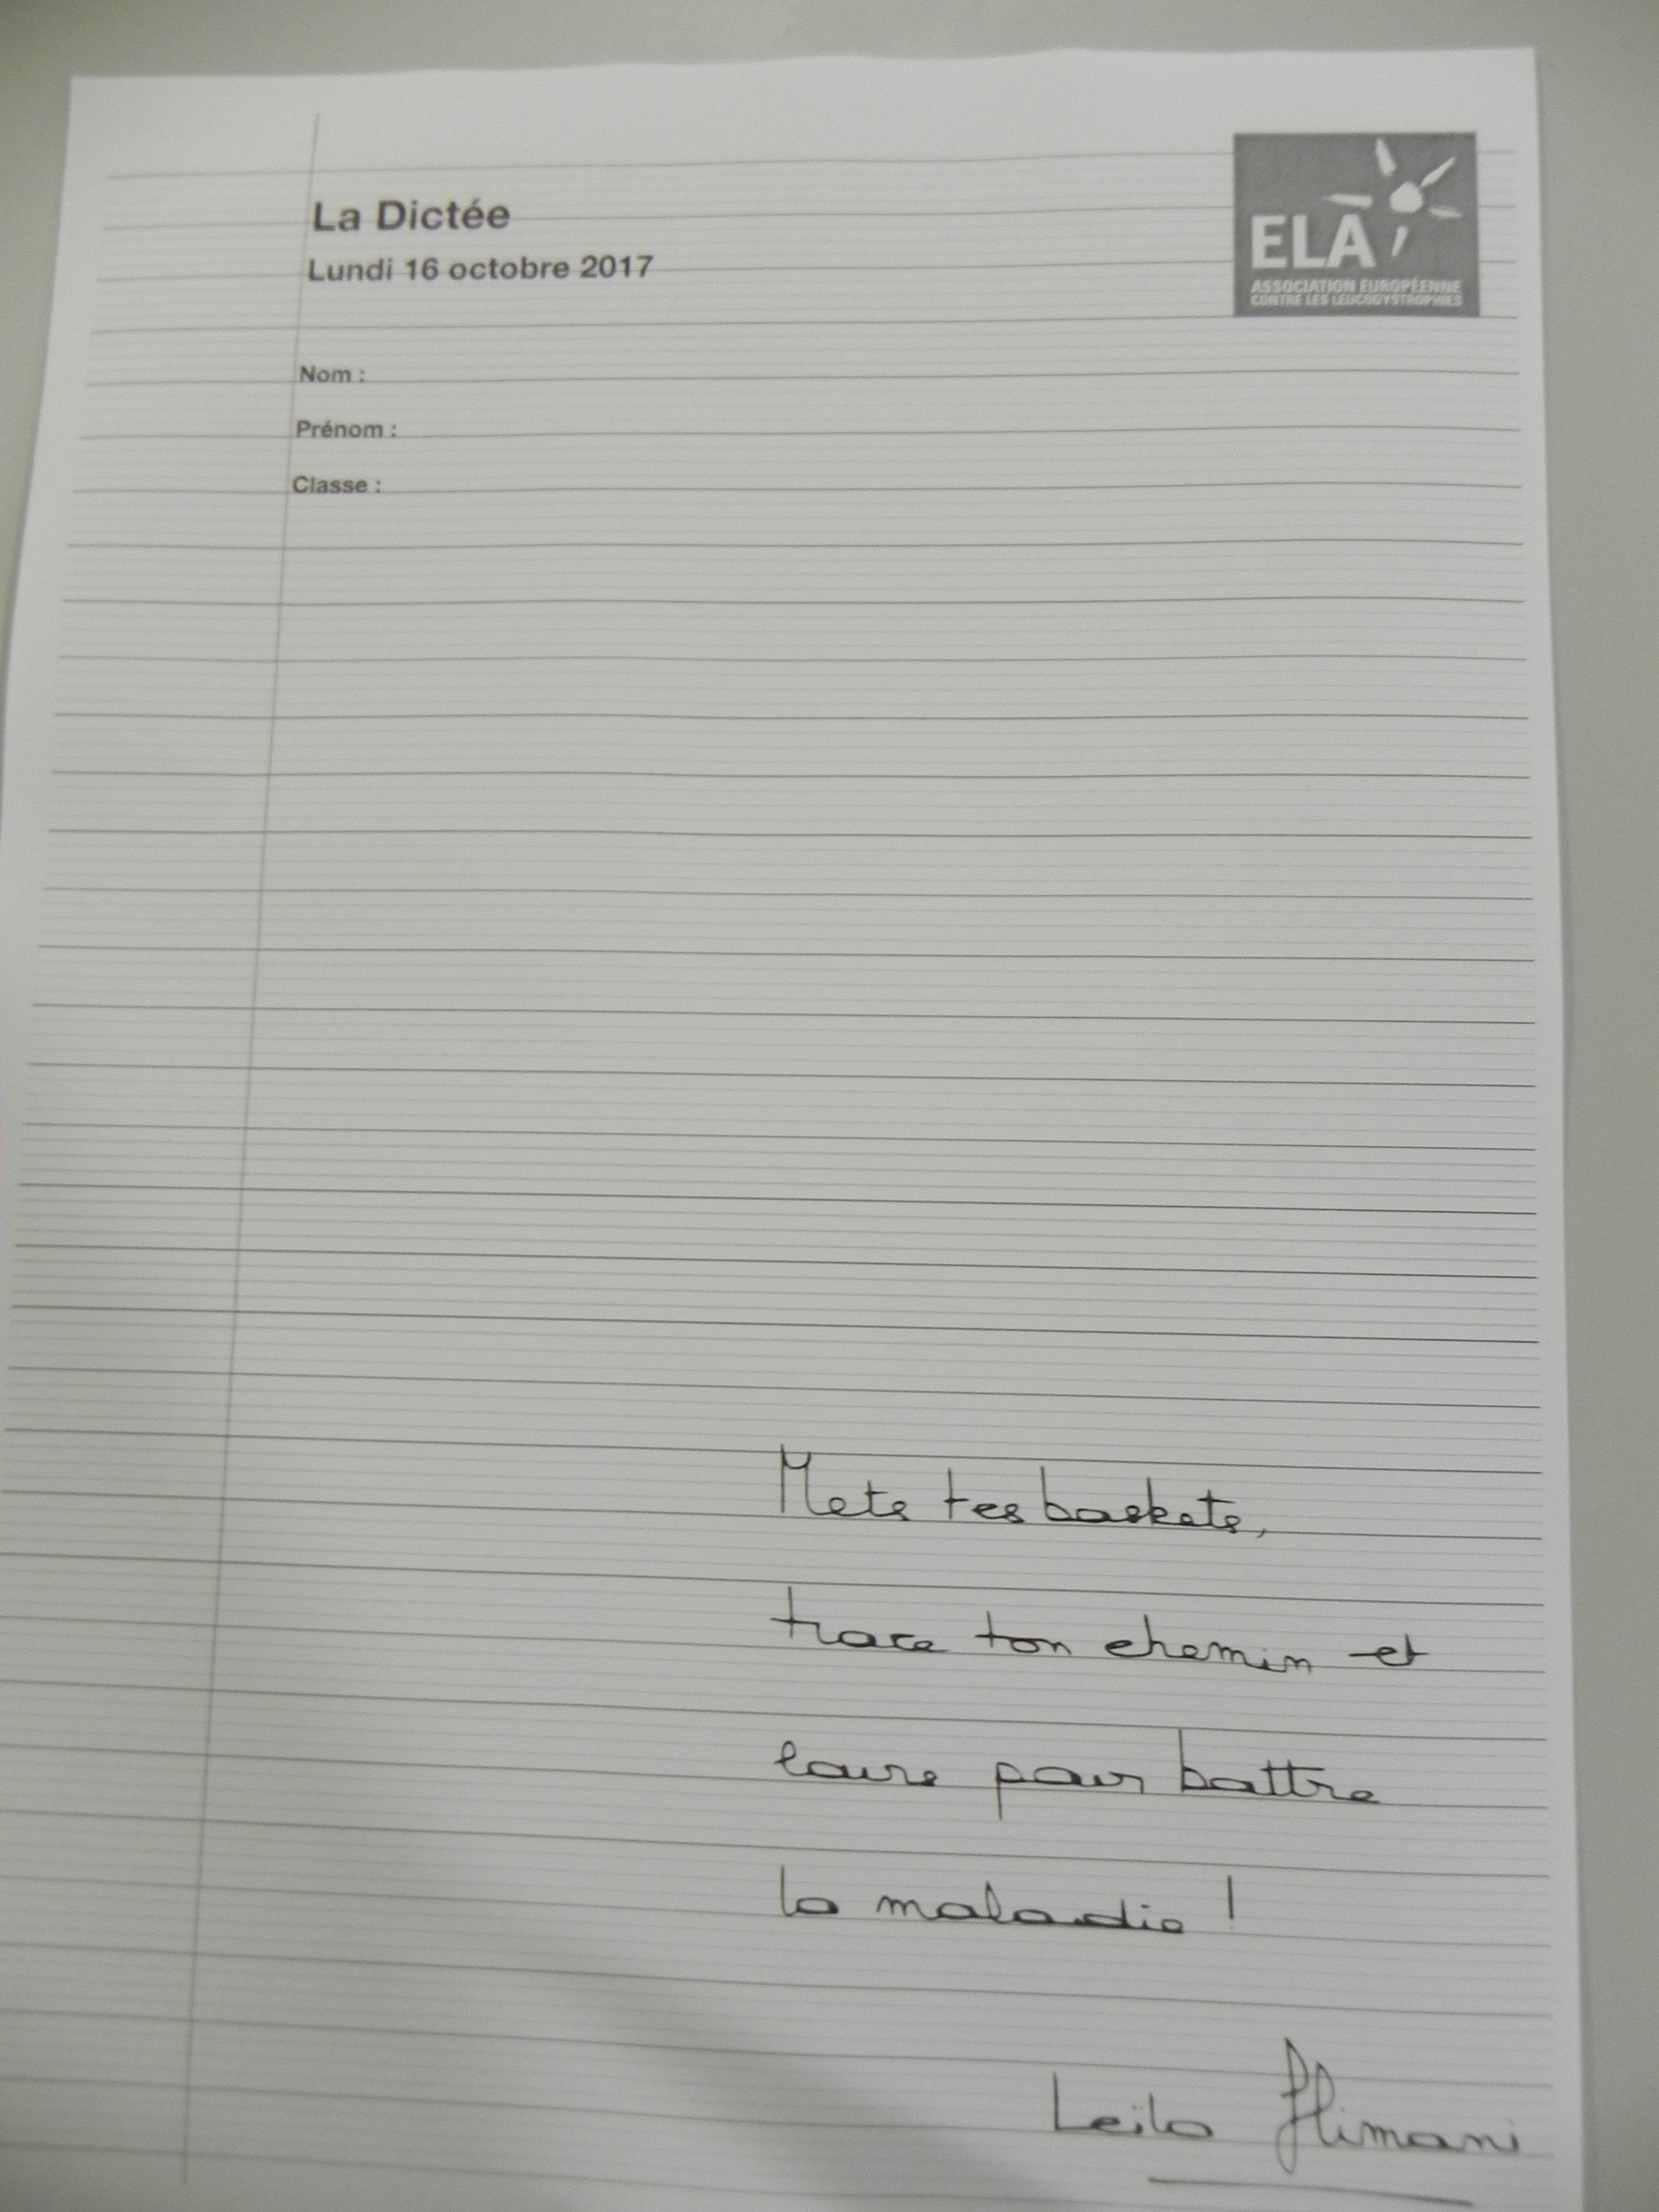 La Dictée
Lundi 16 octobre 2017
ELA
ASSOCIATION EUROPÉENNE
CONTRE LES LEUCODYSTROPHIES
Nom :
Prénom :
Classe :
Mets tes baskets,
trace ton chemin et
cours pour battre
la maladie !
Leïla Slimani